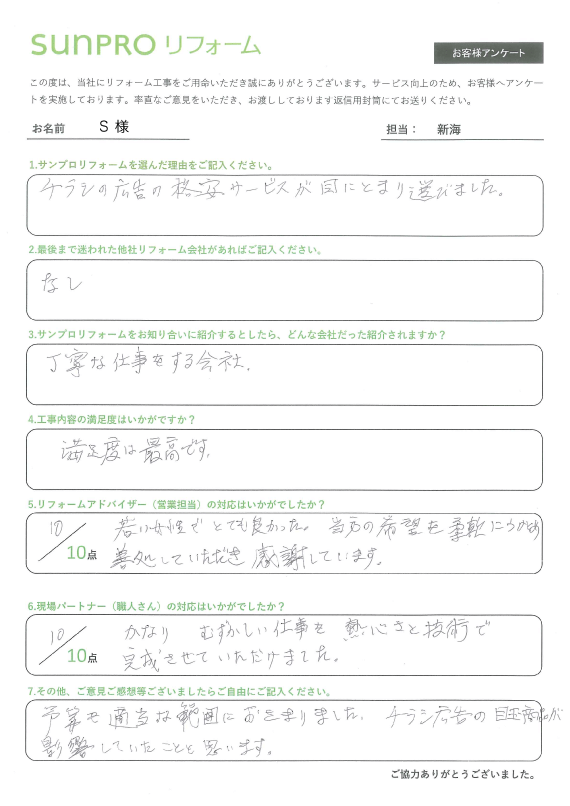 SUNPRO リフォーム
お客様アンケート
この度は、当社にリフォーム工事をご用命いただき誠にありがとうございます。サービス向上のため、お客様へアンケー
トを実施しております。率直なご意見をいただき、お渡ししております返信用封筒にてお送りください。
お名前 S 様 担当： 新海
1.サンプロリフォームを選んだ理由をご記入ください。
チラシの広告の格安サービスが目にとまり選びました。
2.最後まで迷われた他社リフォーム会社があればご記入ください。
なし
3.サンプロリフォームをお知り合いに紹介するとしたら、どんな会社だった紹介されますか？
丁寧な仕事をする会社.
4.工事内容の満足度はいかがですか？
満足度は最高です。
5.リフォームアドバイザー（営業担当）の対応はいかがでしたか？
10／10点 若い女性でとても良かった。当方の希望を柔軟にうかがい
善処していただき感謝しています。
6.現場パートナー（職人さん）の対応はいかがでしたか？
10／10点 かなり むずかしい仕事を 熱心さと技術で
完成させていただけました。
7.その他、ご意見ご感想等ございましたらご自由にご記入ください。
予算も適当な範囲におさまりました. チラシ広告の目玉商品が
影響していたことと思います。
ご協力ありがとうございました。